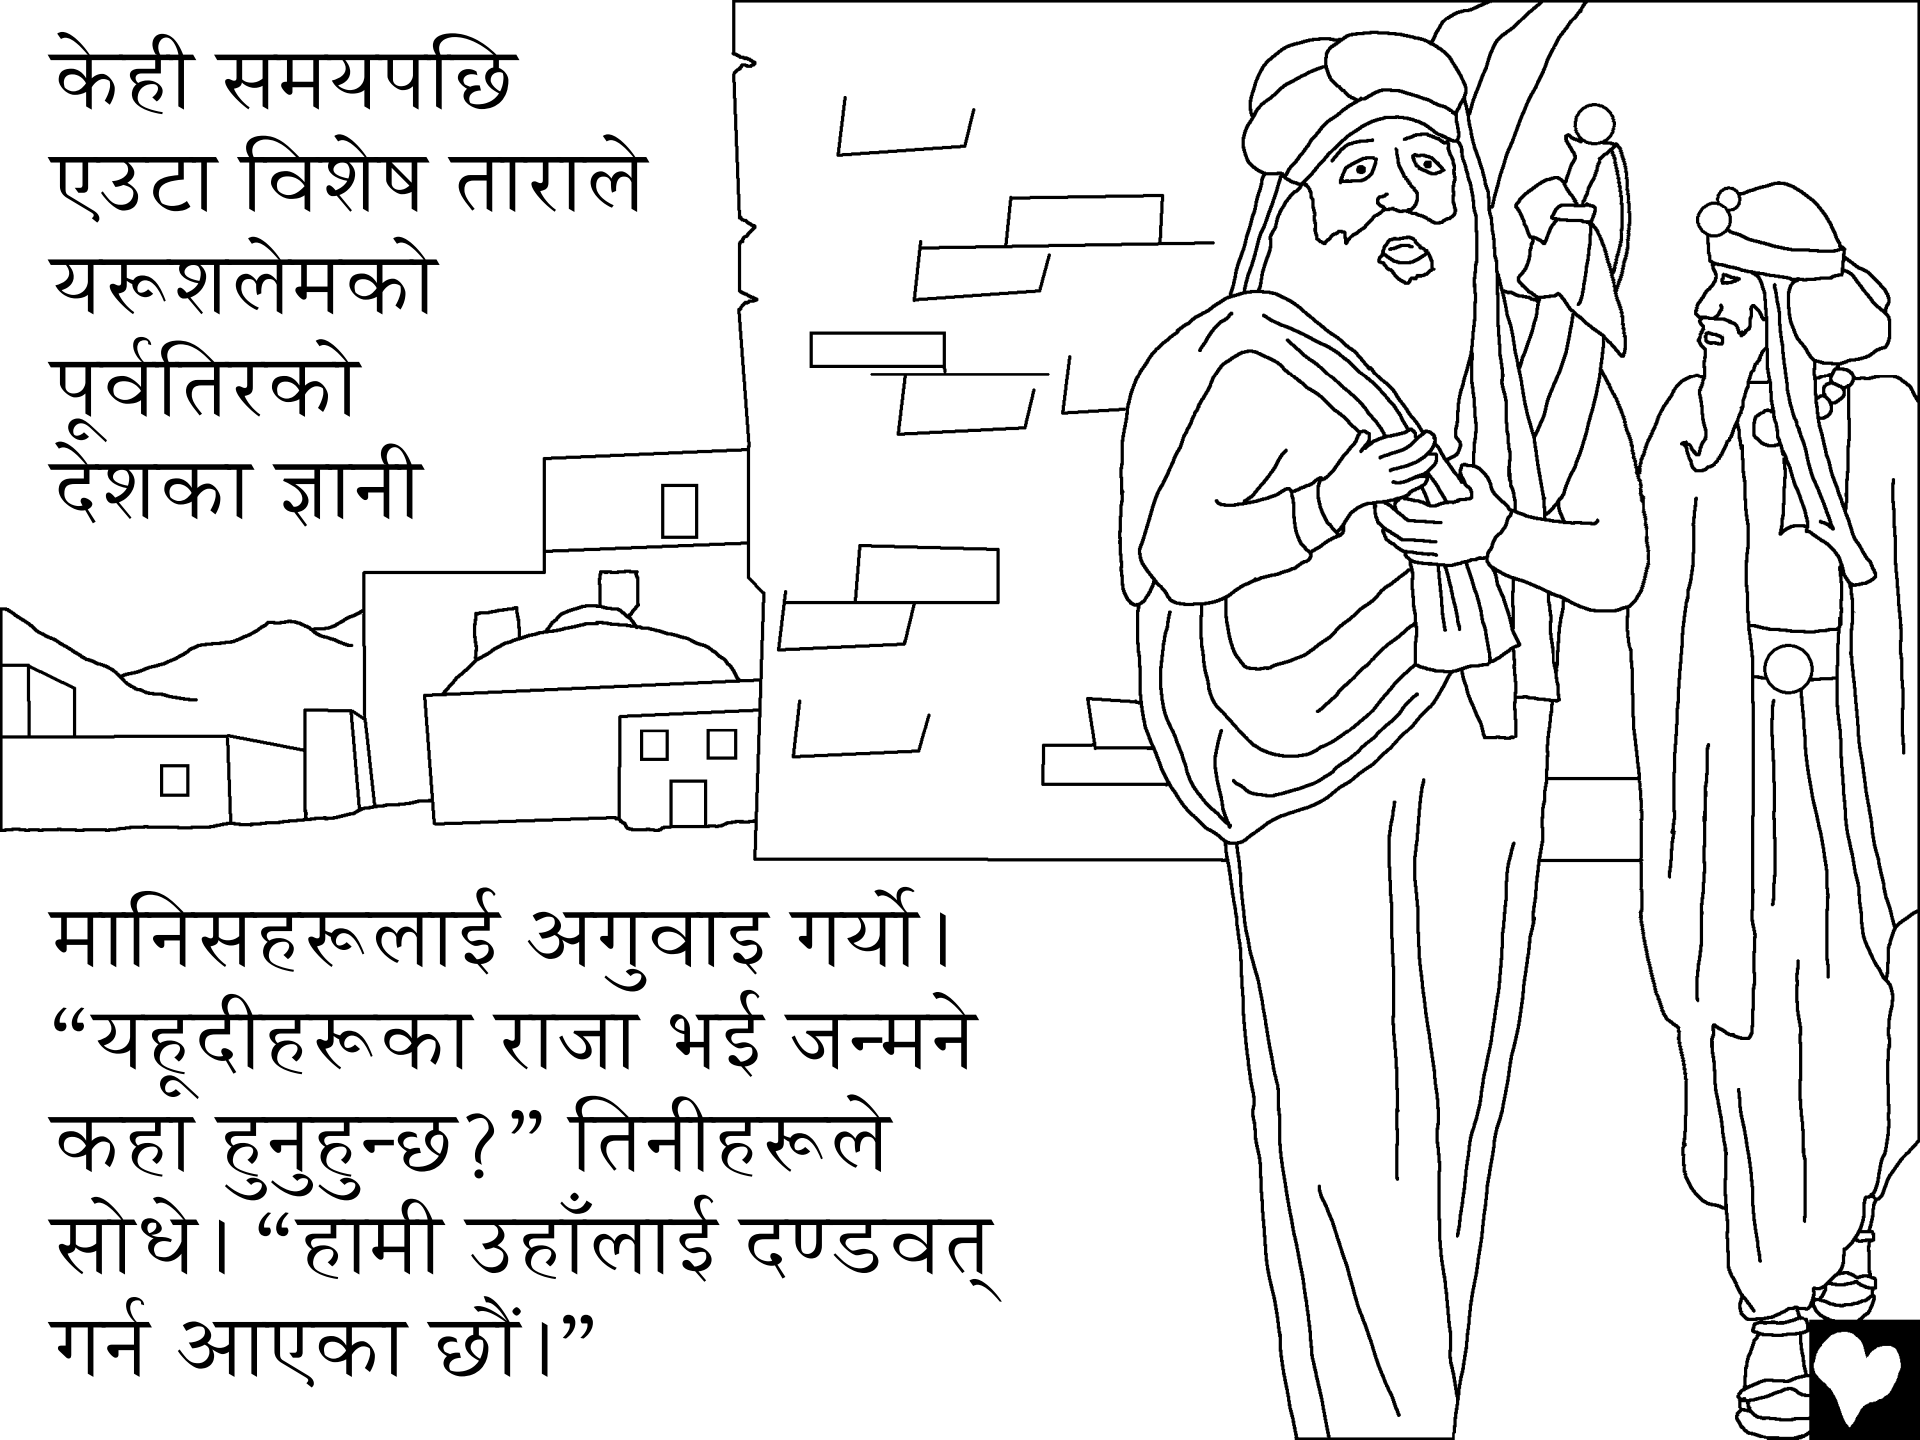 केही समयपछि
एउटा विशेष ताराले
यरूशलेमको
पूर्वतिरको
देशका ज्ञानी
मानिसहरूलाई अगुवाइ गर्यो।
“यहूदीहरूका राजा भई जन्मने
कहा हुनुहुन्छ?” तिनीहरूले
सोधे। “हामी उहाँलाई दण्डवत्
गर्न आएका छौं।”